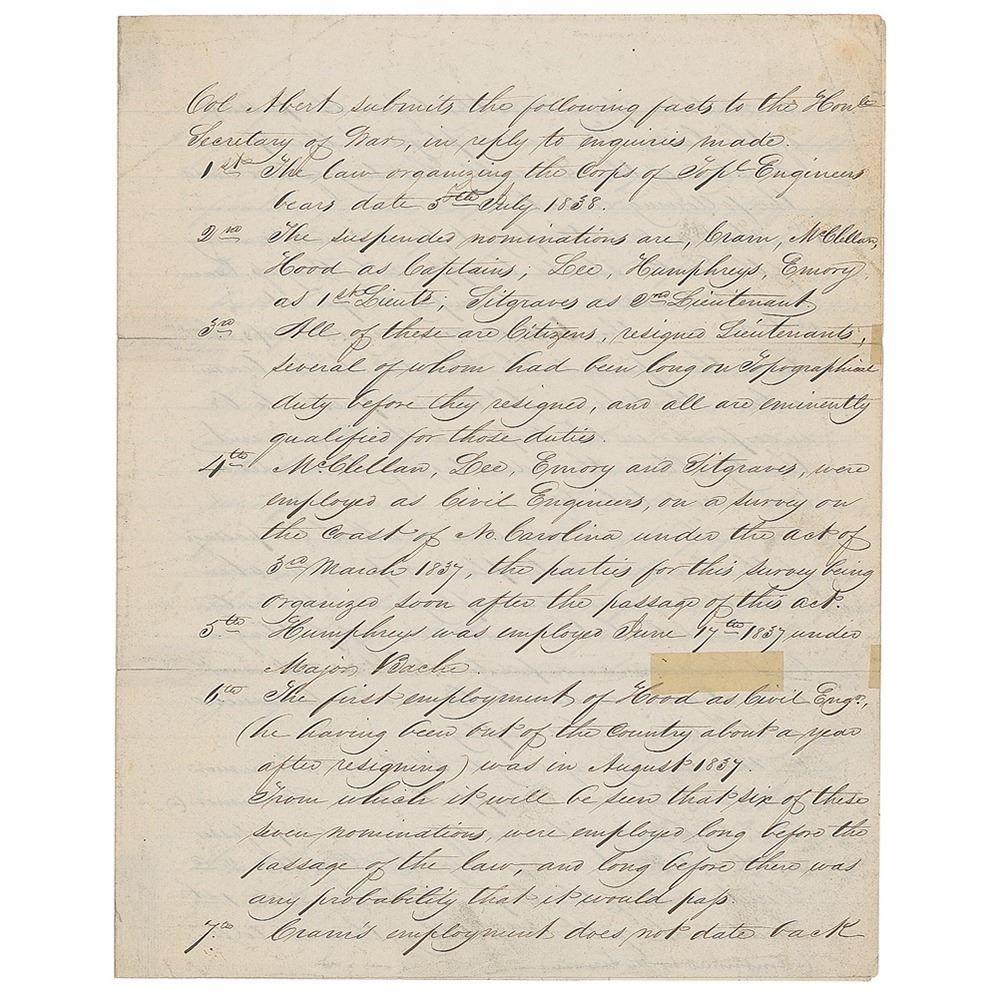 Col Abert submits the following facts to the Honble
Secretary of War, in reply to enquiries made.
1st The law organizing the Corps of Topl Engineers
bears date 5th July 1838.
2nd The suspended nominations are, Cram, McClellan,
Hood as Captains; Lee, Humphreys, Emory
as 1st Lieuts; Sitgraves as 2nd Lieutenant.
3rd All of these are Citizens, resigned Lieutenants,
several of whom had been long on Topographical
duty before they resigned, and all are eminently
qualified for those duties.
4th McClellan, Lee, Emory and Sitgraves, were
employed as Civil Engineers, on a survey on
the coast of N. Carolina under the act of
3rd March 1837, the parties for this survey being
organized soon after the passage of this act.
5th Humphreys was employed June 17th 1837 under
Major Bache.
6th The first employment of Hood as Civil Engr.,
(he having been out of the country about a year
after resigning) was in August 1837.
From which it will be seen that six of these
seven nominations, were employed long before the
passage of the law, and long before there was
any probability that it would pass.
7th Cram's employment does not date back